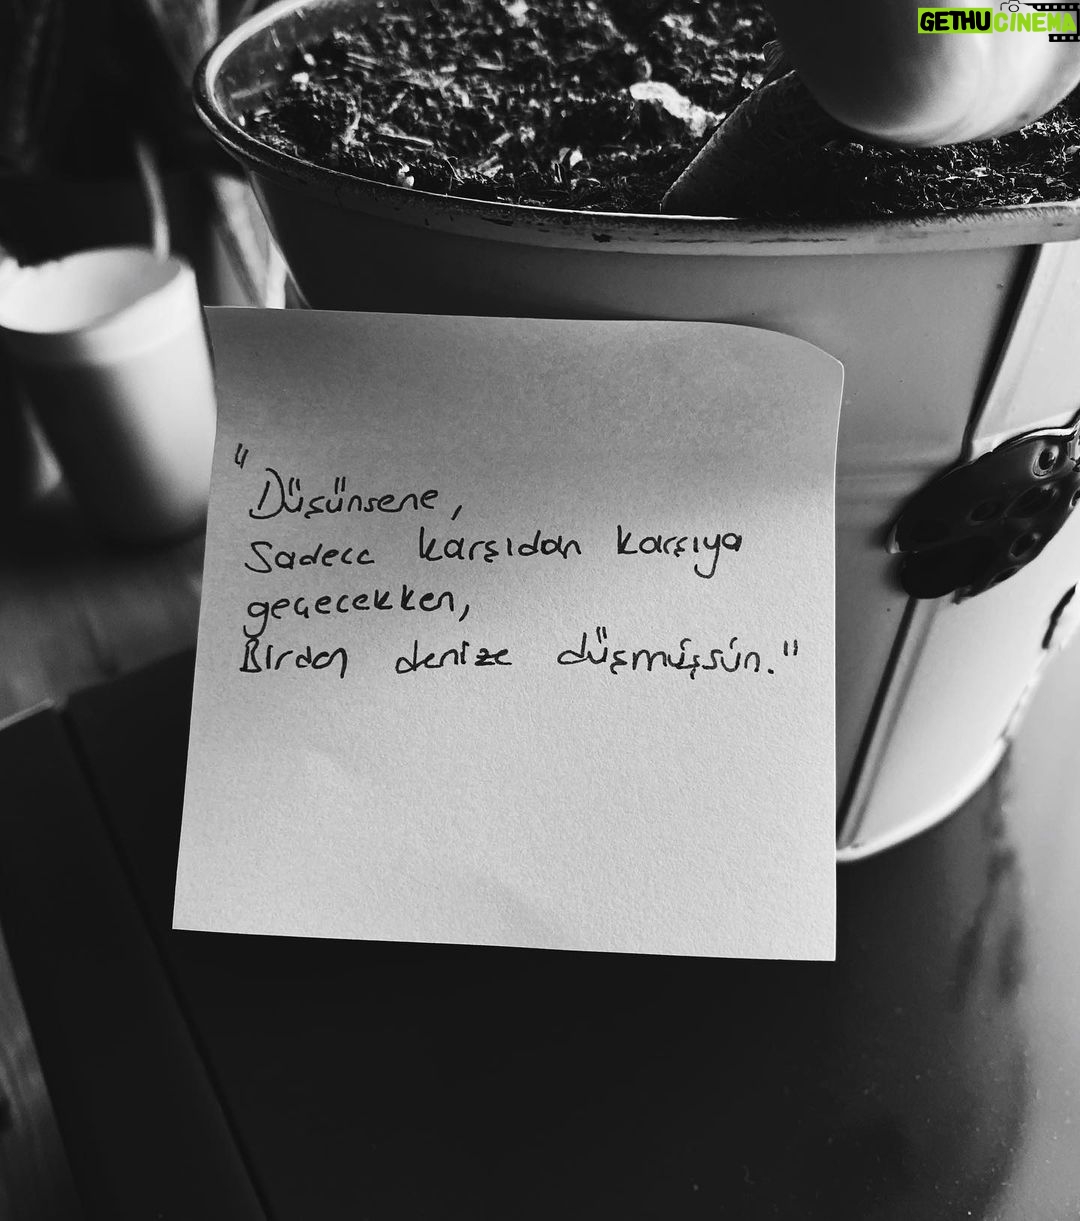 GETHUCINEMA
"Düşünsene,
Sadece karşıdan karşıya
geçecekken,
Birden denize düşmüşsün."